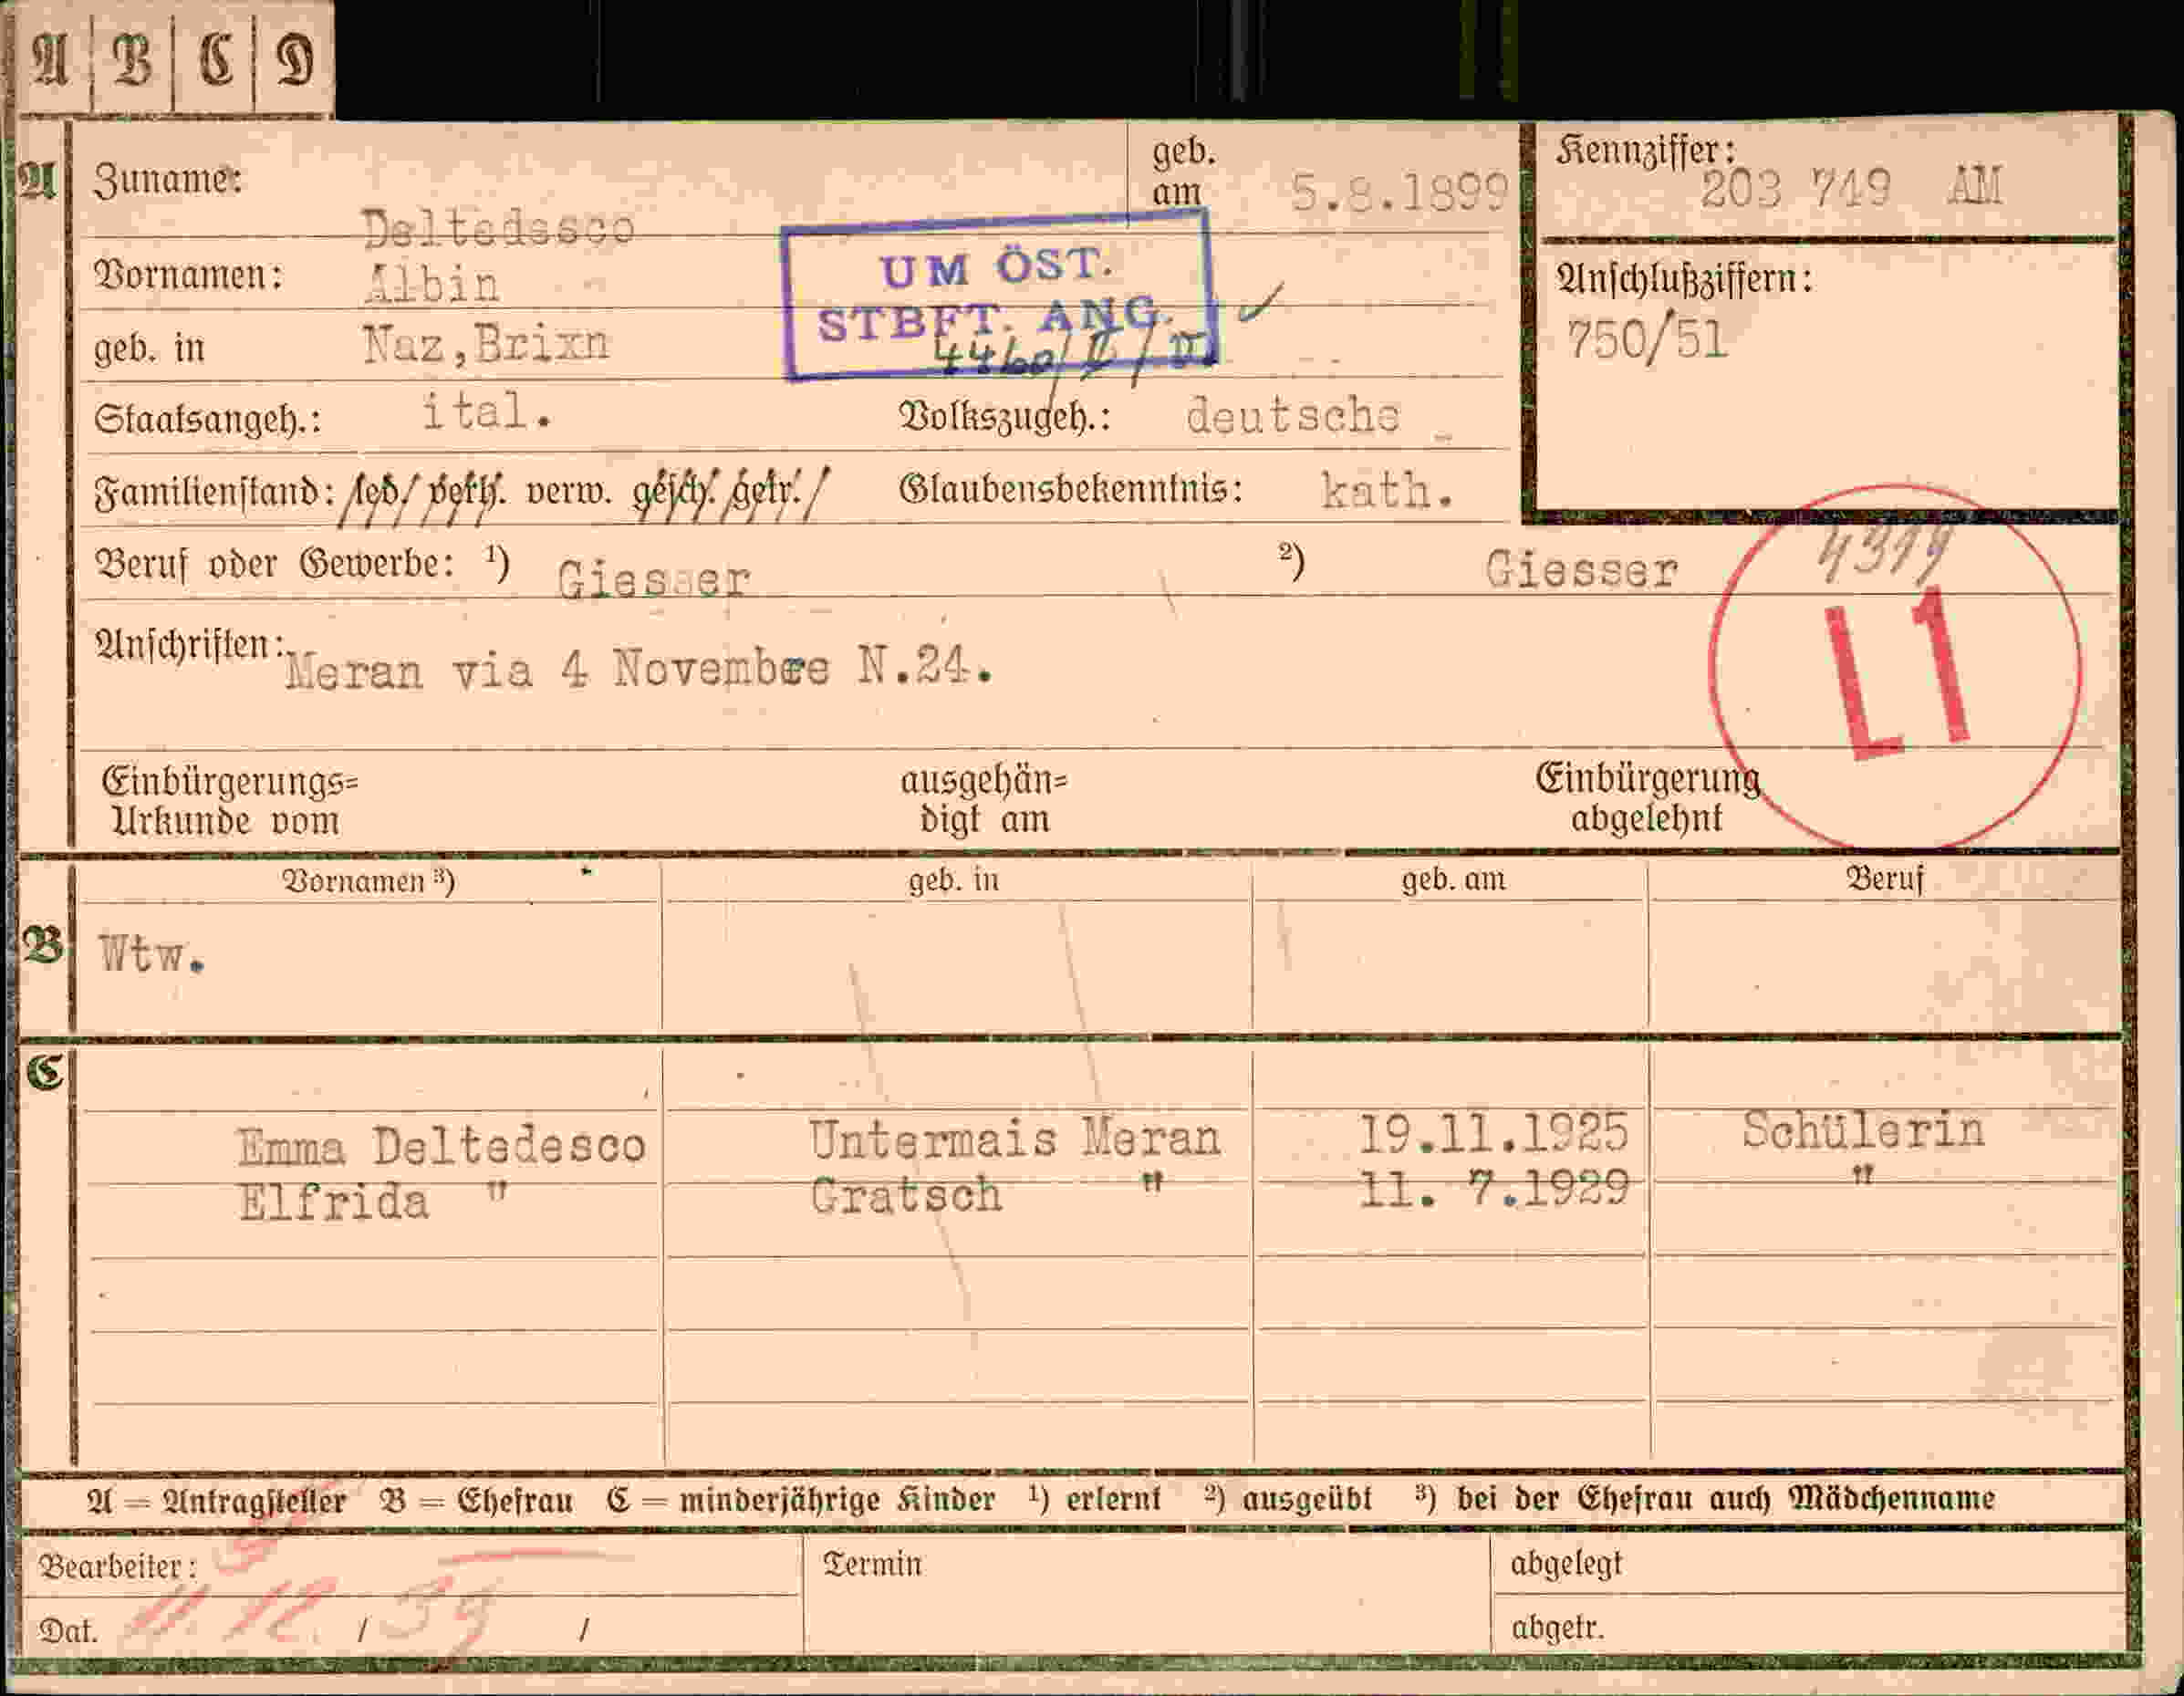 A B C D
A Zuname: Deltedesco geb. am 5.8.1899
Kennziffer: 203 749 AM
Vornamen: Albin
UM ÖST.
STBFT. ANG.
4460/II/II
Anschlußziffern:
750/51
geb. in Naz,Brixn
Staatsangeh.: ital. Volkszugeh.: deutsche
Familienstand: led. verh. verw. gesch. getr. Glaubensbekenntnis: kath.
Beruf oder Gewerbe: 1) Giesser 2) Giesser
4319
L1
Anschriften: Meran via 4 Novembre N.24.
Einbürgerungs=
Urkunde vom
ausgehän=
digt am
Einbürgerung
abgelehnt
Vornamen 3) geb. in geb. am Beruf
B Wtw.
C
Emma Deltedesco Untermais Meran 19.11.1925 Schülerin
Elfrida " Gratsch " 11. 7.1929 "
A = Antragsteller B = Ehefrau C = minderjährige Kinder 1) erlernt 2) ausgeübt 3) bei der Ehefrau auch Mädchenname
Bearbeiter: Termin abgelegt
Dat. 11 12 / 39 / abgetr.